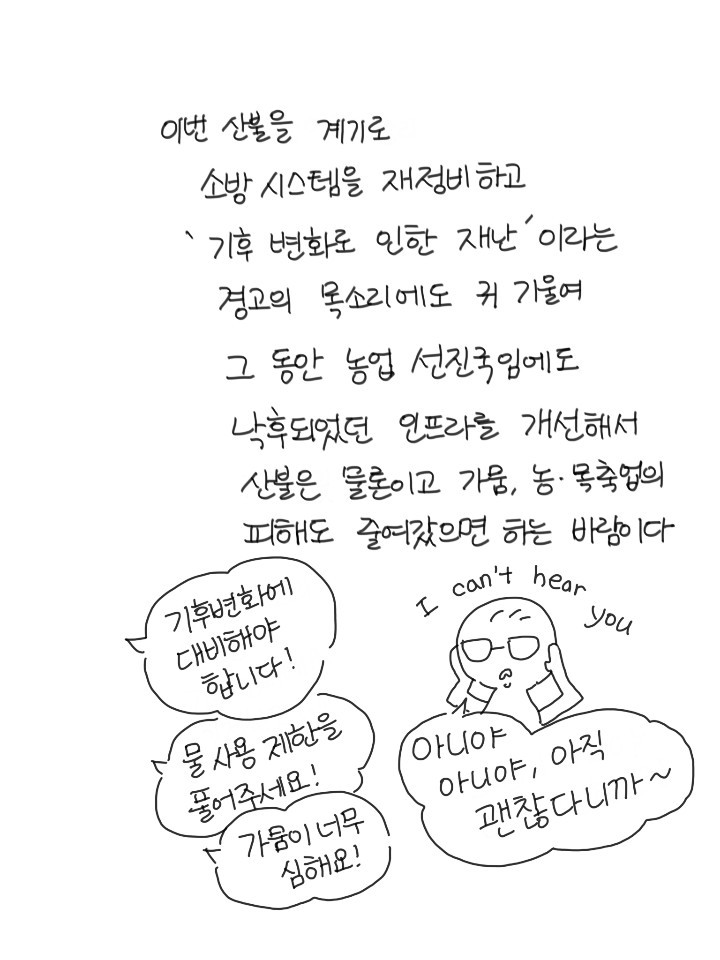 이번 산불을 계기로
소방 시스템을 재정비하고
`기후 변화로 인한 재난´이라는
경고의 목소리에도 귀 기울여
그 동안 농업 선진국임에도
낙후되었던 인프라를 개선해서
산불은 물론이고 가뭄, 농·목축업의
피해도 줄여갔으면 하는 바람이다
기후변화에
대비해야
합니다!
물 사용 제한을
풀어주세요!
가뭄이 너무
심해요!
I can't hear
you
아니야
아니야, 아직
괜찮다니까~